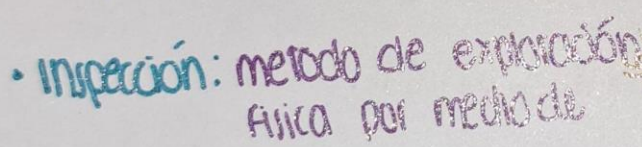 • Inspección: metodo de exploración
física por medio de